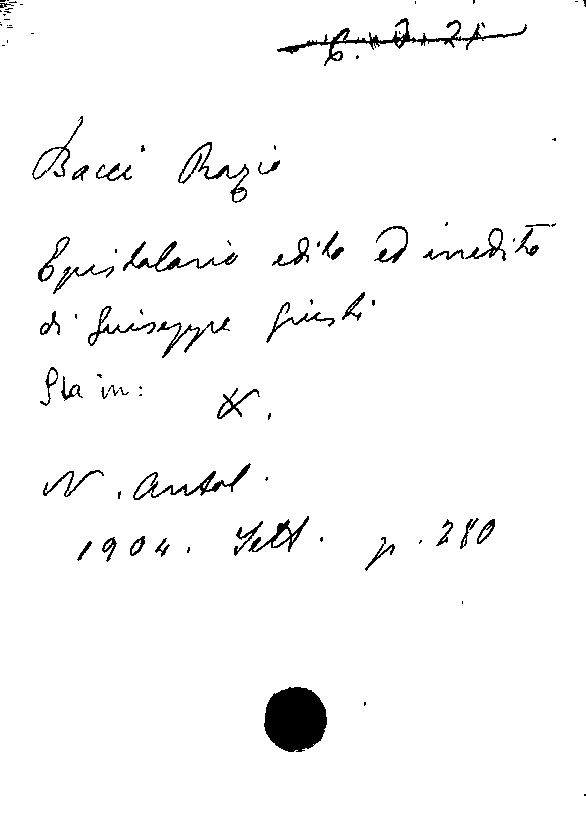 Bacci Orazio
Epistolario edito ed inedito
di Giuseppe Giusti
Sta in:
X.
N. Antol.
1904. Sett. p. 280